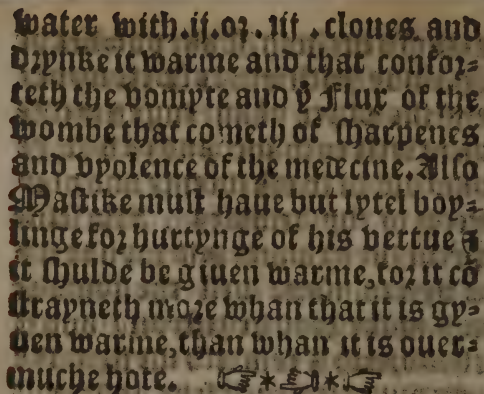 water with .ij. or .iij . cloues and
drynke it warme and that confor=
teth the vomyte and yͤ flux of the
wombe that cometh of sharpenes
and vyolence of the medecine. Also
Mastike must haue but lytel boy=
linge for hurtynge of his vertue ⁊
it shulde be giuen warme, for it cō
strayneth more whan that it is gy=
uen warme, than whan it is ouer=
muche hote. ☞*☞*☞